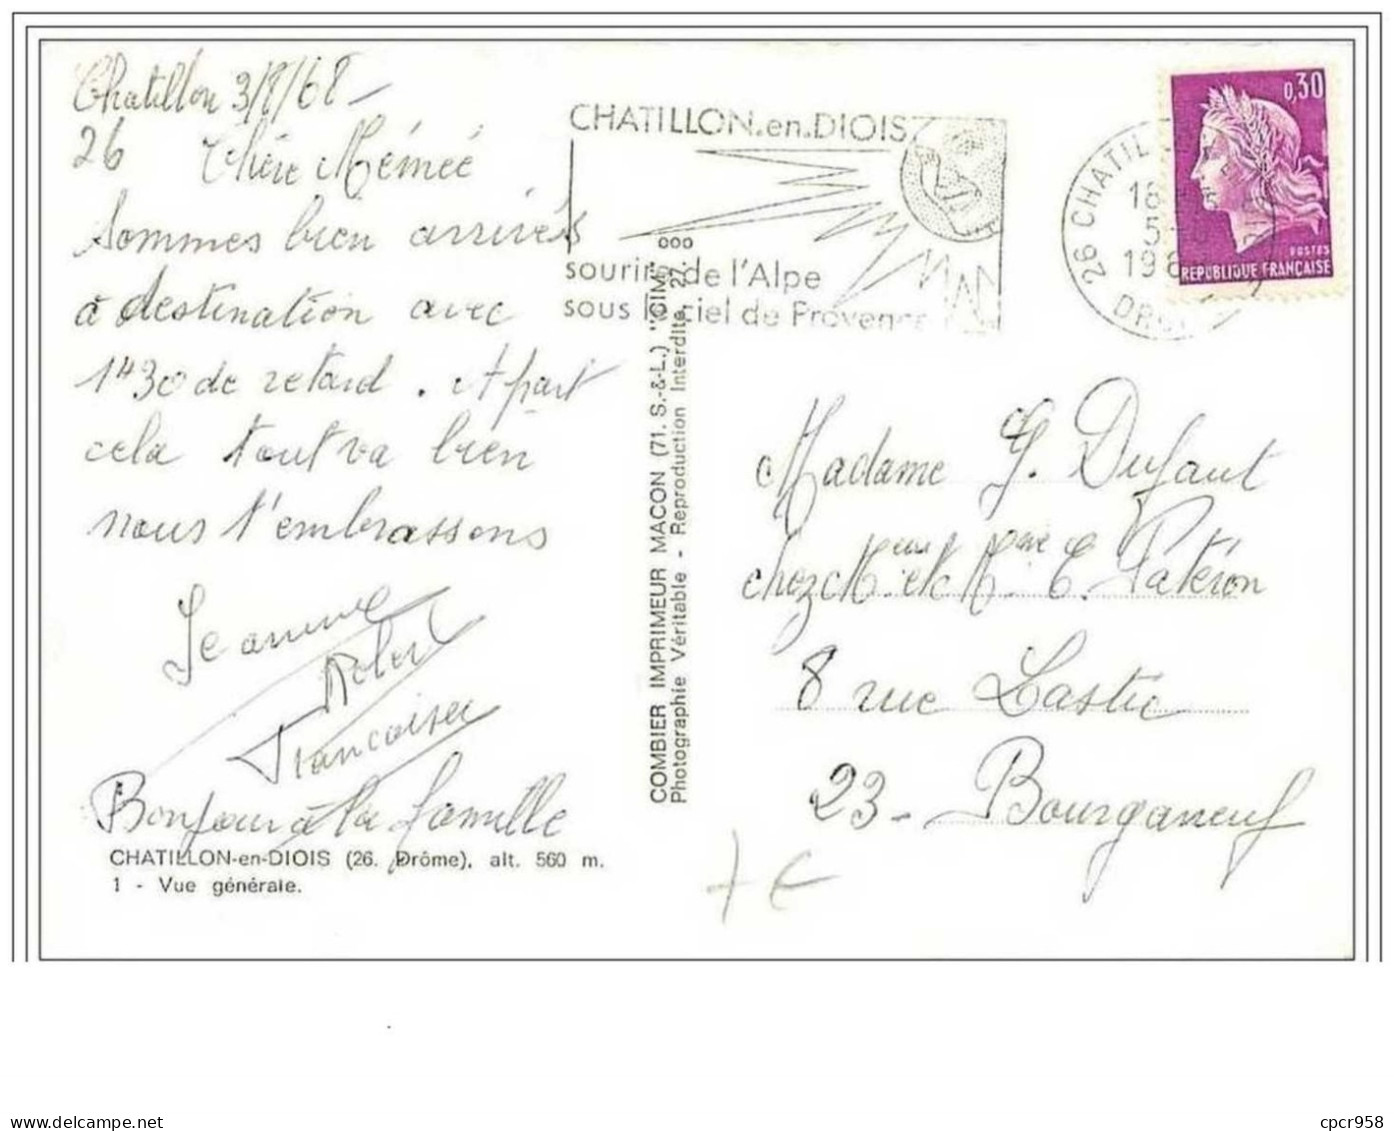 Chatillon 3/8/68
26 Chère Mémée
Sommes bien arrivés
à destination avec
1H30 de retard. A part
cela tout va bien
nous t'embrassons
Jeannine
Robert
Francoise
Bonjour à la famille
CHATILLON-en-DIOIS (26. Drôme), alt. 560 m.
1 - Vue générale.
COMBIER IMPRIMEUR MACON (71. S.-&-L.) "CIM"
Photographie Véritable - Reproduction Interdite
CHATILLON.en.DIOIS
sourire de l'Alpe
sous le ciel de Provence
26 CHATIL
18
5
196
DRO
0,30
POSTES
REPUBLIQUE FRANÇAISE
Madame G. Dufaut
chez Mr et Mme C. Patéron
8 rue Lastic
23 - Bourganeuf
7 €
delcampe.net
cpcr958